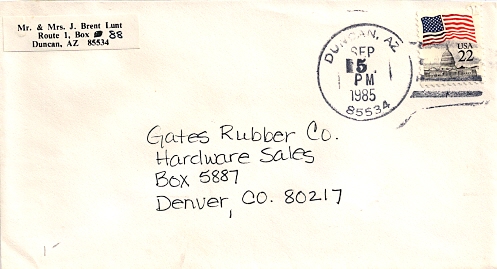 Mr. & Mrs. J. Brent Lunt
Route 1, Box 88
Duncan, AZ 85534
DUNCAN, AZ
SEP
5
PM
1985
85534
USA
22
Gates Rubber Co.
Hardware Sales
Box 5887
Denver, CO. 80217